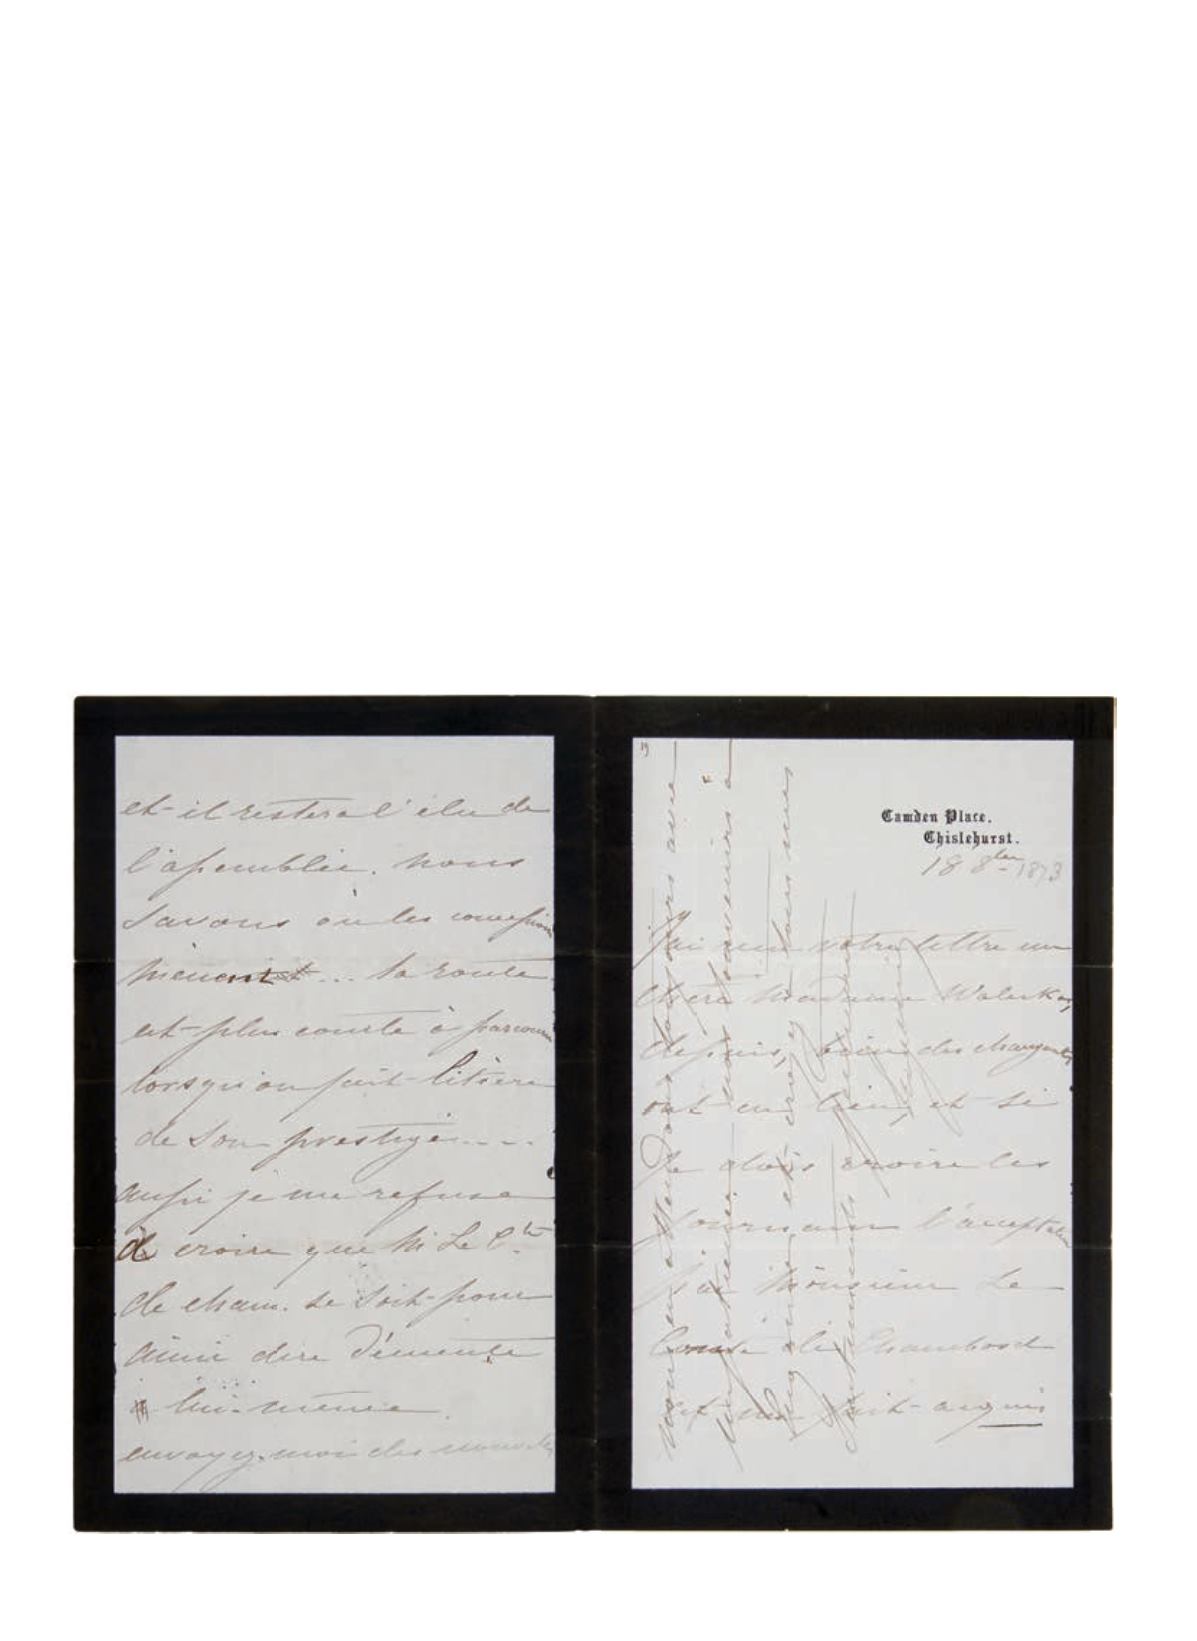 Camden Place.
Chislehurst.
18 8bre 1873
J'ai reçu votre lettre ma
chère Madame Walewska,
depuis, bien des changements
ont eu lieu, et si
je dois croire les
journaux l'acceptation
par Monsieur Le
Comte de Chambord
est un fait acquis
et il restera l'élu de
l'assemblée. nous
savons où les concessions
mènent ... la route
est plus courte à parcourir
lorsqu'on fait litière
de son prestige....
aussi je me refuse
à croire que M. Le Cte
de Cham. se soit pour
ainsi dire démenti
lui-même.
envoyez-moi des nouvelles
nous en attendons toujours avec
impatience
mes souvenirs à
croyez à tous mes
sentiments
Eugénie